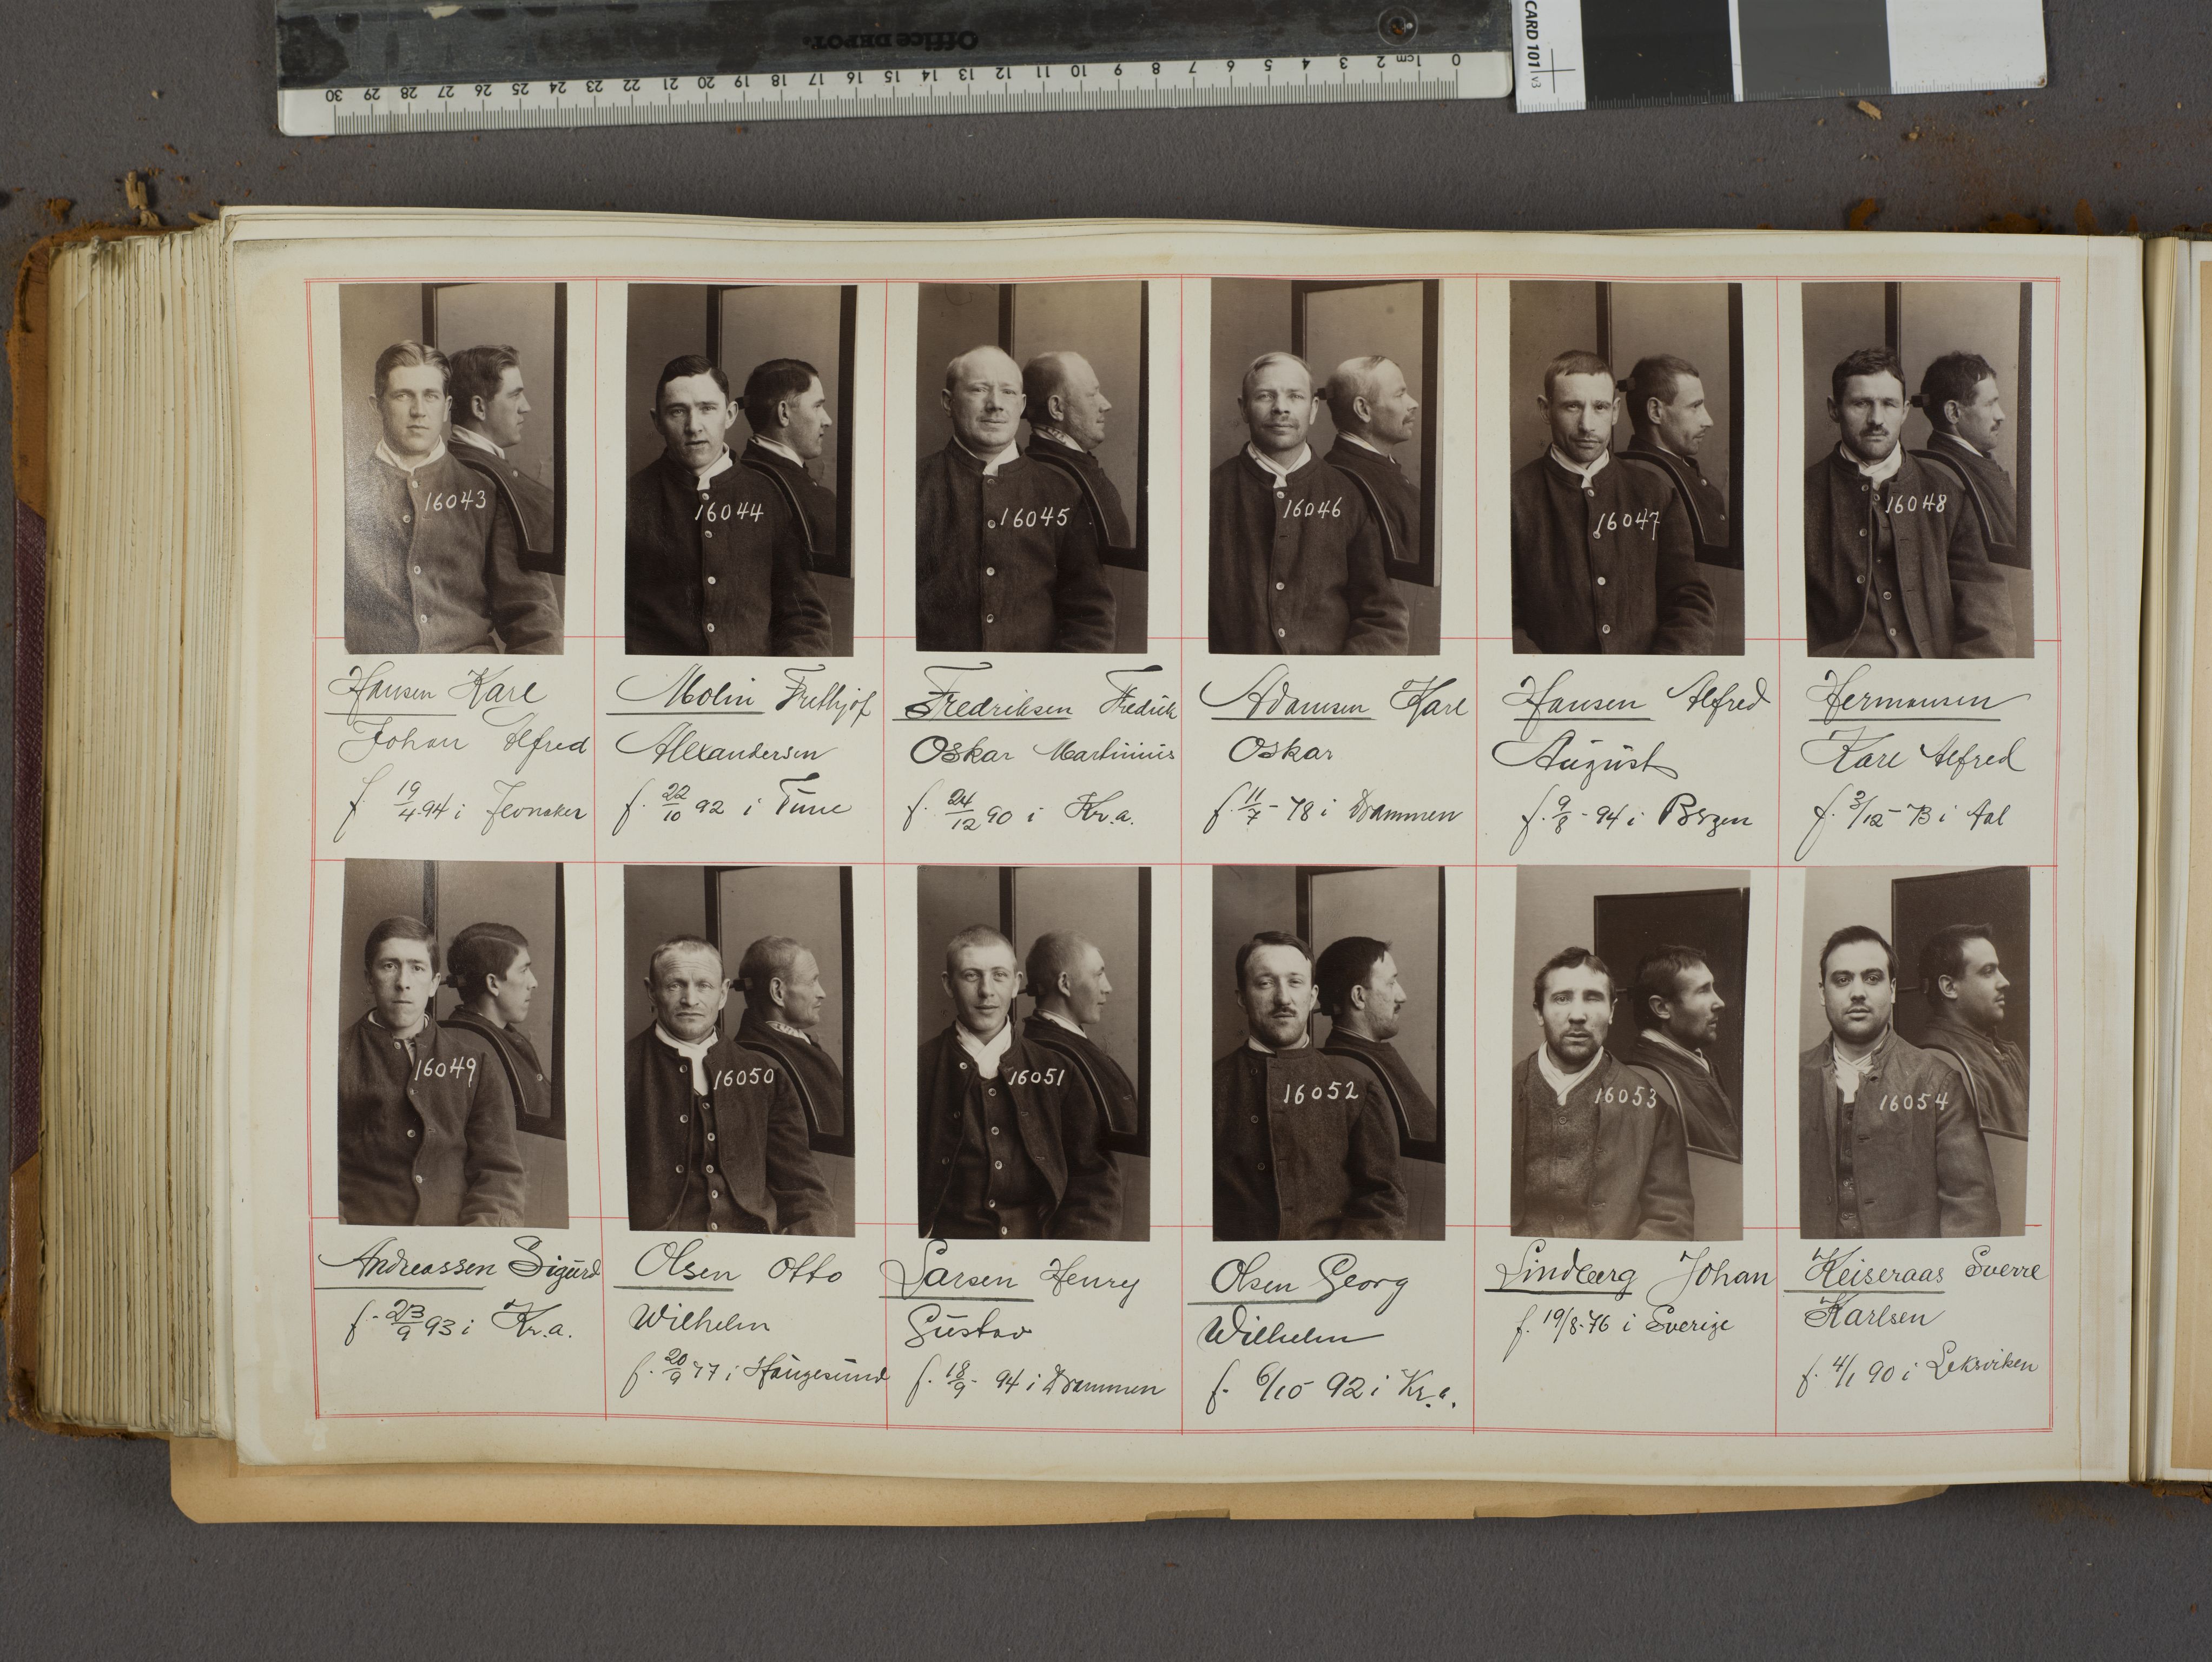 Office DEPOT.
CARD 101 v3
0 1cm 2 3 4 5 6 7 8 9 10 11 12 13 14 15 16 17 18 19 20 21 22 23 24 25 26 27 28 29 30
16043
16044
16045
16046
16047
16048
Hansen Karl
Johan Alfred
f. 19/4-94 i
Molin Frithjof
Alexandersen
f. 22/10 92 i Tune
Fredriksen Fredrik
Oskar Martinius
f. 24/12 90 i Kr.a.
Adamsen Karl
Oskar
f. 11/7 - 78 i Drammen
Hansen Alfred
August
f. 9/8 - 94 i Bergen
Hermansen
Karl Alfred
f. 3/12 - 73 i Aal
16049
16050
16051
16052
16053
16054
Andreassen Sigurd
f. 23/9 93 i Kr.a.
Olsen Otto
Wilhelm
f. 20/9 77 i Haugesund
Larsen Henry
Gustav
f. 18/9 - 94 i Drammen
Olsen Georg
Wilhelm
f. 6/10 92 i Kr.a.
Lindberg Johan
f. 19/8-76 i Sverige
Keiseraas Sverre
Karlsen
f. 4/1 90 i Leksviken